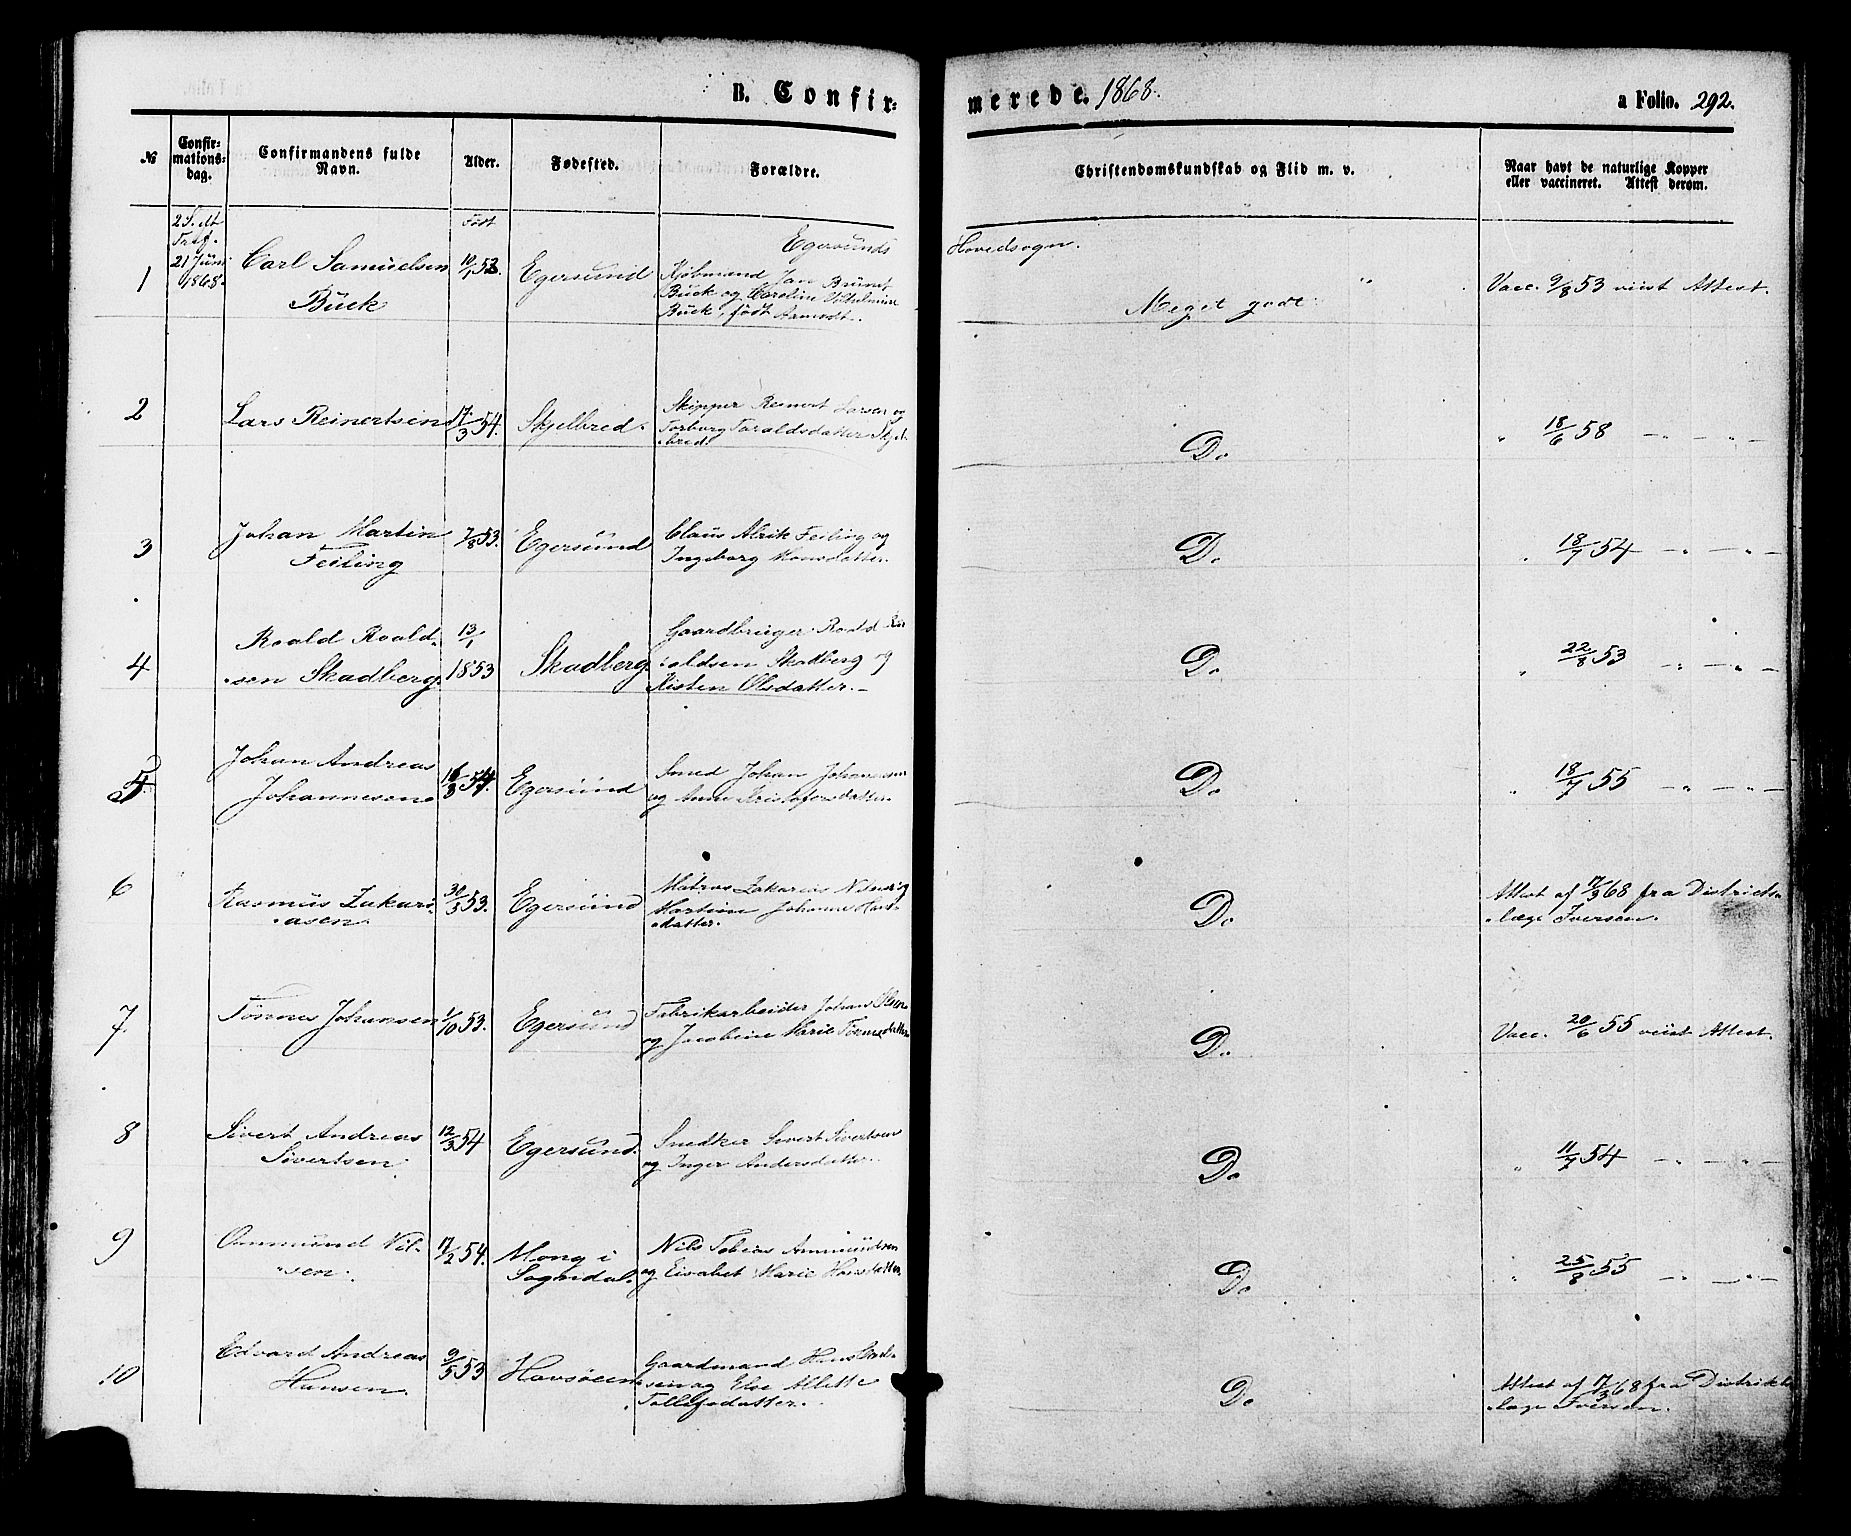 B. Confir-
merede. 1868.
a Folio. 292.
№
Confir-
mations-
dag.
Confirmandens fulde
Navn.
Alder.
Fødested.
Forældre.
Christendomskundskab og Flid m. v.
Naar havt de naturlige Kopper
eller vaccineret. Attest derom.
Egersunds
Hovedsogn.
1
2 S. eft.
Tref.
21 Juni
1868.
Carl Samuelsen
Bück
Født
10/1 53.
Egersund
Kjøbmand Jan
Bück og Caroline Vilhelmine
Bück, født
Meget godt
Vacc. 9/8 53 viist Attest.
2
Lars Reinertsen
17/3 54.
Skjelbred.
Skipper Reinert Larsen og
Torborg Toraldsdatter Skjel-
bred.
Do
" 18/6 58 — " — " —
3
Johan Martin
Feiling
7/8 53.
Egersund
Claus Alrik Feiling og
Ingeborg Hansdatter.
Do
" 18/7 54 — " — " —
4
Roald Roald-
sen Skadberg.
13/1
1853
Skadberg.
Gaardbruger Roald Ro-
aldsen Skadberg og
Kisten Olsdatter. —
Do
" 22/8 53 — " — " —
5
Johan Andreas
Johannesen
16/8 54.
Egersund
Smed Johan Johannesen
og Anne Kristofersdatter.
Do
" 18/7 55 — " — " —
6
Rasmus Zakari-
asen.
30/5 53.
Egersund
Matros Zakarias og
Martine Johanne Hans-
datter.
Do
Attest af 17/3 68 fra Districts-
læge Iversen.
7.
Tønnes Johansen
1/10 53.
Egersund
Fabrikarbeider Johan Olsen
og Jacobine Marie Tønnesdatter
Do
Vacc. 20/6 55 viist Attest.
8
Sivert Andreas
Sivertsen.
12/3 54
Egersund.
Snedker Sivert Sivertsen
og Inger Andersdatter.
Do
" 11/7 54 — " — " —
9
Ommund Nil-
sen.
17/2 54.
Mong i
Sogndal.
Nils Tobias Ammundsen
og Eisabet Marie Hansdatter.
Do
" 25/8 55 — " — " —
10
Edvard Andreas
Hansen.
9/5 53
Havsøen
Gaardmand Hans
sen og Else Allette
Tollefsdatter.
Do
Attest af 17/3 68 fra Distrikts
læge Iversen.